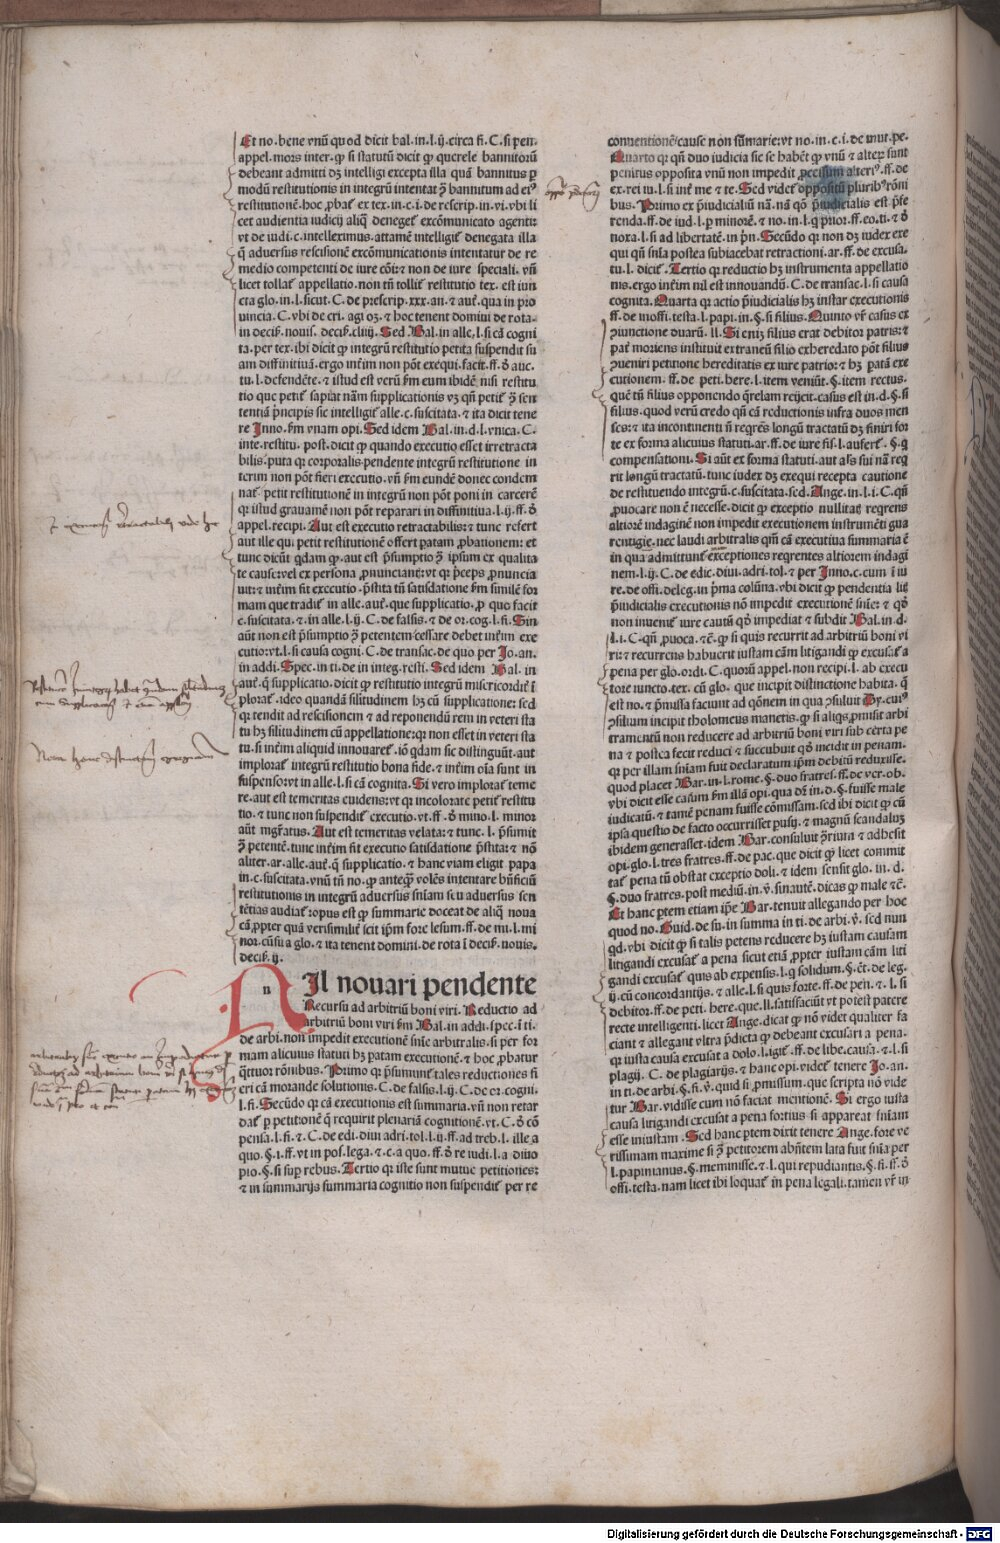 Et no. bene vnū quod dicit bal. in. l. ij. circa fi. C. si pen.
appel. mors inter. ꝙ si statutū dicit ꝙ querele bannitorū
debeant admitti dꝫ intelligi excepta illa quā bannitus ꝑ
modū restitutionis in integrū intentat ꝫ bannitum ad eiꝰ
restitutionē. hoc ꝓbat ex tex. in. c. i. de rescrip. in. vi. vbi li
cet audientia iudicij aliqͥ deneget̄ excōmunicato agenti:
vt de iudi. c. intelleximus. attamē intelligit̄ denegata illa
q̄ aduersus rescisionē excōmunicationis intentatur de re
medio competenti de iure cōi: ⁊ non de iure speciali. vn̄
licet tollat̄ appellatio. non tn̄ tollit̄ restitutio tex. est iun
cta glo. in. l. sicut. C. de prescrip. xxx. an. ⁊ aut̄. qua in pro
uincia. C. vbi de cri. agi oꝫ. ⁊ hoc tenent domini de rota.
in decis̄. nouis. decis̄. clviij. Sed. Bal. in alle. l. si cā cogni
ta. per tex. ibi dicit ꝙ integrū restitutio petita suspendit su
am diffinitiuā. ergo interim non pōt exequi. facit. ff. ð auc.
tu. l. defendēte. ⁊ istud est verū ẜm eum ibidē. nisi restitu
tio que petit̄ sapiat nām supplicationis vꝫ qn̄ petit̄ ꝫ sen
tentiā pͥncipis sic intelligit̄ alle. c. suscitata. ⁊ ita dicit tene
re Inno. ẜm vnam opi. Sed idem Bal. in. d. l. vnica. C.
inte. restitu. post. dicit ꝙ quando executio esset irretracta
bilis. puta qꝛ corporalis pendente integrū restitutione in
terim non pōt fieri executio. vn̄ ẜm eundē donec condem
nat̄ petit restitutionē in integrū non pōt poni in carcerē
qꝛ istud grauamē non pōt reparari in diffinitiua. l. ij. ff. ð
appel. recipi. Aut est executio retractabilis: ⁊ tunc refert
aut ille qui petit restitutionē offert paratam ꝓbationem: et
tunc dicūt qdam ꝙ. aut est p̄sumptio ꝫ ipsum ex qualita
te cause: vel ex persona ꝓnunciantꝭ: vt qꝛ p̄ceps ꝓnuncia
uit: ⁊ interim fit executio. p̄stita tn̄ satisdatione ẜm similē for
mam que tradit̄ in alle. aut̄. que supplicatio. ꝓ quo facit
c. suscitata. ⁊. in alle. l. ij. C. de falsis. ⁊ de or. cog. l. fi. Sin
aūt non est p̄sumptio ꝫ petentem: cessare debet interim exe
cutio: vt. l. si causa cogni. C. de transac. de quo per Jo. an.
in addi. Spec. in ti. de in integ. resti. Sed idem Bal. in
aut̄. q̄ supplicatio. dicit ꝙ restitutio integrū misericorditer ī
plorat̄. ideo quandā silitudinem hꝫ cū supplicatione: sed
qꝛ tendit ad rescisionem ⁊ ad reponendū rem in veteri sta
tu hꝫ silitudinem cū appellatione: qꝛ non esset in veteri sta
tu. si interim aliquid innouaret̄. iō qdam sic distinguūt. aut
implorat̄ integrū restitutio bona fide. ⁊ interim oīa sunt in
suspenso: vt in alle. l. si cā cognita. Si vero implorat̄ teme
re. aut est temeritas euidens: vt qꝛ incolorate petit̄ restitu
tio. ⁊ tunc non suspendit̄ executio. vt. ff. ð mino. l. minor
aūt mgr̄atus. Aut est temeritas velata: ⁊ tunc. l. p̄sumit
ꝫ petentē. tunc interim fit executio satisdatione p̄stita: ⁊ nō
aliter. ar. alle. aut̄. q̄ supplicatio. ⁊ hanc viam eligit papa
in. c. suscitata. vnū tn̄ no. ꝙ anteqꝫ volēs intentare bn̄ficiū
restitutionis in integrū aduersus sn̄iam seu aduersus sen
tētias audiat̄: opus est ꝙ summarie doceat de aliq̄ noua
cā ꝓpter quā verisimilr̄ scit ip̄m fore lesum. ff. de mi. l. mi
nor. cū sua glo. ⁊ ita tenent domini. de rota ī decis̄. nouis.
decis̄. ij.
Nil nouari pendente
Recursu ad arbitriū boni viri. Reductio ad
arbitriū boni viri ẜm Bal. in addi. spec. ī ti.
de arbi. non impedit executionē sn̄ie arbitralis. si per for
mam alicuius statuti hꝫ paratam executionē. ⁊ hoc ꝓbatur
q̄ttuor rōnibus. Primo qꝛ p̄sumunt̄ tales reductiones fi
eri cā morande solutionis. C. de falsis. l. ij. C. de or. cogni.
l. fi. Secūdo qꝛ cā executionis est summaria. vn̄ non retar
dat̄ ꝑ petitionē q̄ requirit plenariā cognitionē. vt. C. ð cō
pensa. l. fi. ⁊. C. de edi. diui adri. tol. l. ij. ff. ad treb. l. ille a
quo. §. i. ff. vt in pos. lega. ⁊. c. a quo. ff. ð re iudi. l. a diuo
pio. §. si suꝑ rebus. Tertio qꝛ iste sunt mutue petitiones:
⁊ in summarijs summaria cognitio non suspendit̄ per re
conuentionē: cause non sūmarie: vt no. in. c. i. de mut. pe.
Quarto qꝛ qn̄ duo iudicia sic se habēt ꝙ vnū ⁊ alteꝝ sunt
penitus opposita vnū non impedit ꝓcessum alteriꝰ. ff. de
ex. rei iu. l. si inter me ⁊ te. Sed videt̄ oppositū pluribꝰ rōni
bus. Primo ex p̄iudicialiū nā. nā qō p̄iudicialis est p̄fe
renda. ff. de iud. l. ꝑ minorē. ⁊ no. in. l. q prior. ff. eo. ti. ⁊ ð
noxa. l. si ad libertatē. in pͥn. Secūdo qꝛ non dꝫ iudex exe
qui qn̄ sn̄ia postea subiacebat retractioni. ar. ff. de excusa.
tu. l. dicit̄. Tertio qꝛ reductio hꝫ instrumenta appellatio
nis. ergo interim nil est innouandū. C. de transac. l. si causa
cognita. Quarta qꝛ actio p̄iudicialis hꝫ instar executionis
ff. de inoffi. testa. l. papi. in. §. si filius. Quinto vr̄ casus ex
ꝯiunctione duarū. ll. Si enim filius erat debitor patris: ⁊
pater moriens instituit extraneū filio exheredato pōt filius
ꝯueniri petitione hereditatis ex iure patrio: ⁊ hꝫ paratā exe
cutionem. ff. de peti. here. l. item veniūt. §. item rectus.
que tn̄ filius opponendo q̄relam reijcit. casus est in. d. §. si
filius. quod verū credo qn̄ cā reductionis infra duos men
ses: ⁊ ita incontinenti n̄ reqrēs longū tractatū dꝫ finiri for
te ex forma alicuius statuti. ar. ff. de iure fis. l. aufert̄. §. q
compensationi. Si aūt ex forma statuti. aut als̄ sui nā req
rit longū tractatū. tunc iudex dꝫ exequi recepta cautione
de restituendo integrū. c. suscitata. sed. Ange. in. l. i. C. qn̄
ꝓuocare non ē necesse. dicit ꝙ exceptio nullitatꝭ reqrens
altiorē indaginē non impedit executionem instrumēti gua
rentigie. nec laudi arbitralis qm̄ cā executiua summaria ē
in qua admittunt̄ exceptiones reqrentes altiorem indagi
nem. l. ij. C. de edic. diui. adri. tol. ⁊ per Inno. c. cum ī iu
re. de offi. deleg. in pͥma colūna. vbi dicit ꝙ pendentia litꝭ
p̄iudicialis executionis nō impedit executionē sn̄ie: ⁊ qð
non inuenit̄ iure cautū qð impediat ⁊ subdit Bal. in. d.
l. i. C. qn̄ ꝓuoca. ⁊c̄. ꝙ si quis recurrit ad arbitriū boni vi
ri: ⁊ recurrens habuerit iustam cām litigandi ꝙ excusat̄ a
pena per glo. ordi. C. quorū appel. non recipi. l. ab execu
tore iuncto. tex. cū glo. que incipit distinctione habita. q̄
est no. ⁊ p̄missa faciunt ad qōnem in qua ꝯsuluit Dy. cuiꝰ
ꝯsilium incipit tholomeus manetis. ꝙ si aliqs ꝓmisit arbi
tramentū non reducere ad arbitriū boni viri sub certa pe
na ⁊ postea fecit reduci ⁊ succubuit qð incidit in penam.
qꝛ per illam sn̄iam fuit declaratum ip̄m debitū reduxisse.
quod placet Bar. in. l. rome. §. duo fratres. ff. de ver. ob.
vbi dicit esse casum ẜm illā opi. qua dr̄ in. d. §. fuisse male
iudicatū. ⁊ tamē penam fuisse cōmissam. sed ibi dicit ꝙ cū
ipsa questio de facto occurrisset ꝑusij. ⁊ magnū scandaluꝫ
ibidem generasset. idem Bar. consuluit ꝯtrariū ⁊ adhesit
opi. glo. l. tres fratres. ff. de pac. que dicit ꝙ licet commit
tat̄ pena tn̄ obstat exceptio doli. ⁊ idem sensit glo. in. d.
§. duo fratres. post mediū. in. v̄. sinautē. dicas ꝙ male ⁊c̄.
Et hanc ptem etiam ip̄e Bar. tenuit allegando per hoc
quod no. Guid. de su. in summa in ti. de arbi. v̄. sed nun
qd. vbi dicit ꝙ si talis petens reducere hꝫ iustam causam
litigandi excusat̄ a pena sicut etiā ꝓpter iustam cām liti
gandi excusat̄ quis ab expensis. l. q solidum. §. et̄. de leg.
ij. cū concordantijs. ⁊ alle. l. si quis forte. ff. de pen. ⁊. l. si
debitor. ff. de peti. here. que. ll. satisfaciūt vt potest patere
recte intelligenti. licet Ange. dicat ꝙ nō videt qualiter fa
ciant ⁊ allegant vltra p̄dicta ꝙ debeant excusari a pena.
qꝛ iusta causa excusat a dolo. l. igit̄. ff. de libe. causa. ⁊. l. si
plagij. C. de plagiarijs. ⁊ hanc opi. videt̄ tenere Jo. an.
in ti. de arbi. §. fi. v̄. quid si ꝓmissum. que scripta nō vide
tur Bar. vidisse cum nō faciat mentionē. Si ergo iusta
causa litigandi excusat a pena fortius si appareat sn̄iam
esse iniustam. Sed hanc ptem dixit tenere Ange. fore ve
rissimam maxime si ꝫ petitorem abn̄tem lata fuit sn̄ia per
l. papinianus. §. meminisse. ⁊. l. qui repudiantis. §. fi. ff. ð
offi. testa. nam licet ibi loquat̄ in pena legali. tamen vr̄ in
Digitalisierung gefördert durch die Deutsche Forschungsgemeinschaft - DFG